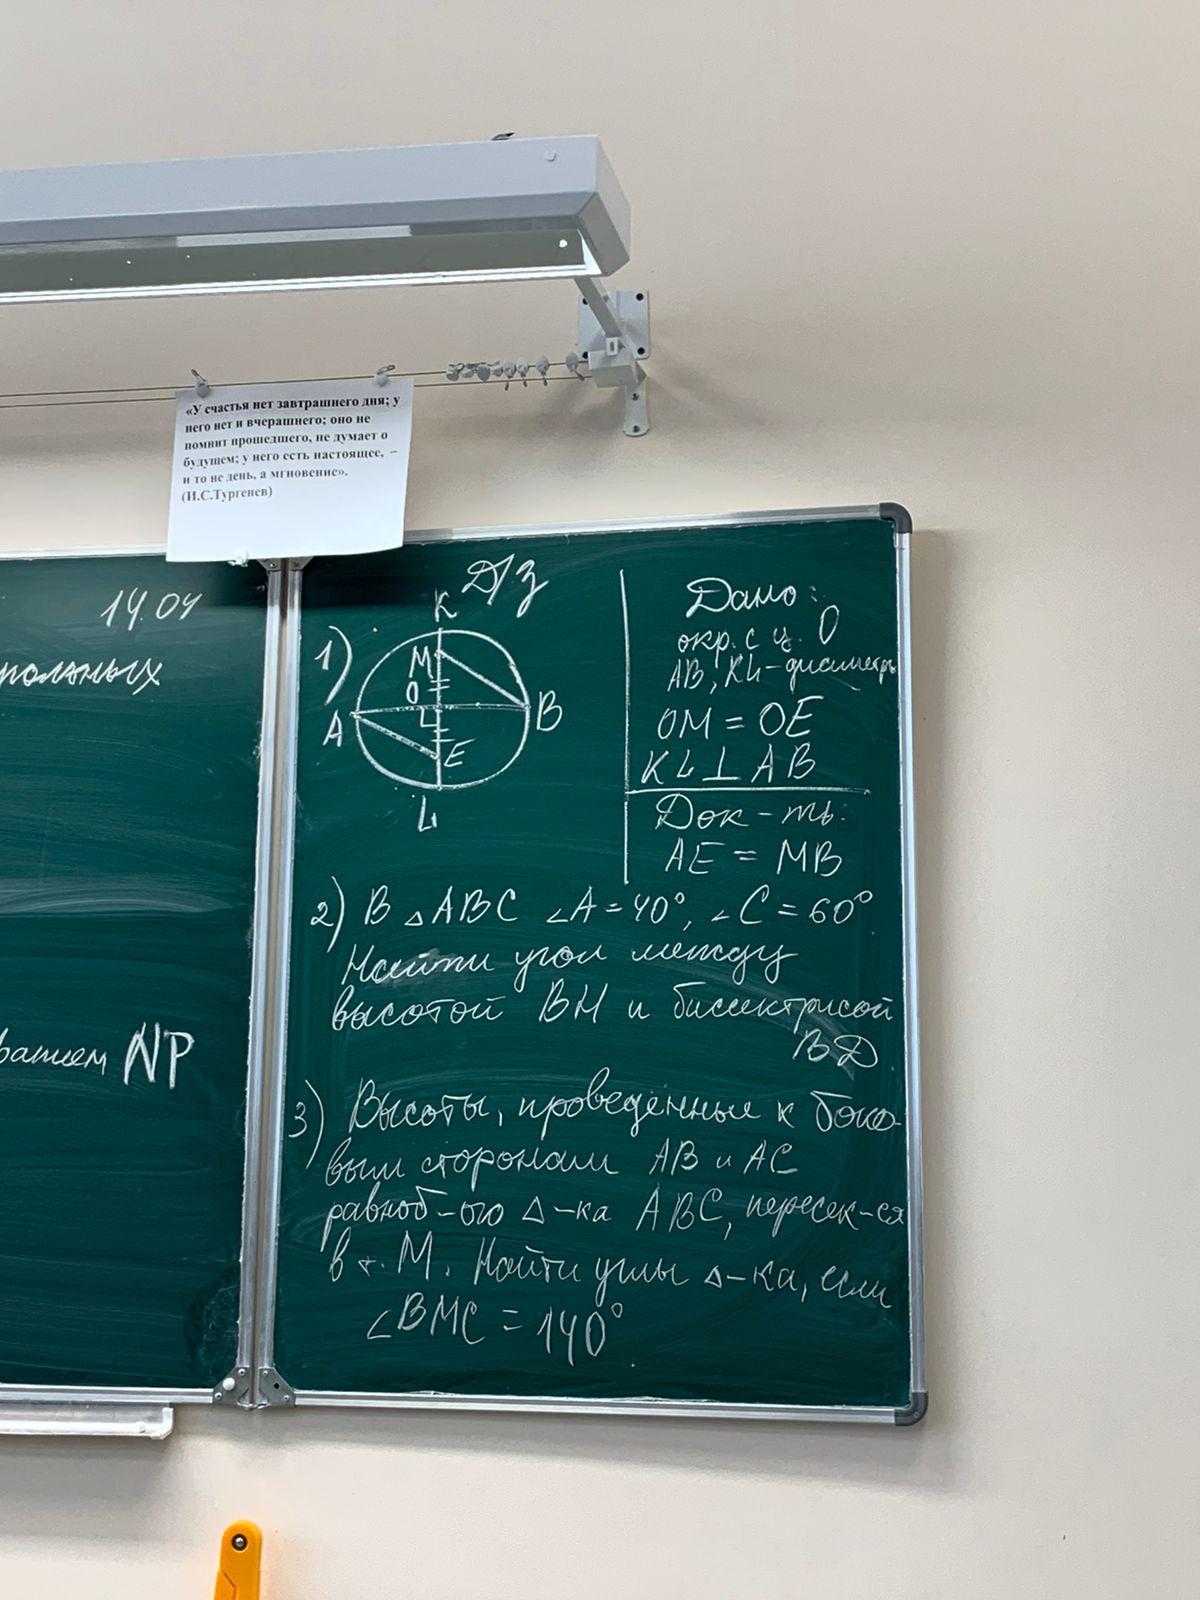 «У счастья нет завтрашнего дня; у
него нет и вчерашнего; оно не
помнит прошедшего, не думает о
будущем; у него есть настоящее, –
и то не день, а мгновение».
(И.С.Тургенев)
14.04
NP
Д/з
1)
K
M
O
A
B
E
L
Дано:
окр. с ц. O
AB, KL - диаметры
OM = OE
KL ⊥ AB
Док-ть:
AE = MB
2) В △ABC ∠A = 40°, ∠C = 60°
Найти угол между
высотой BH и биссектрисой
BD
3) Высоты, проведённые к боко-
вым сторонам AB и AC
равноб-ого △-ка ABC, пересек-ся
в т. M. Найти углы △-ка, если
∠BMC = 140°